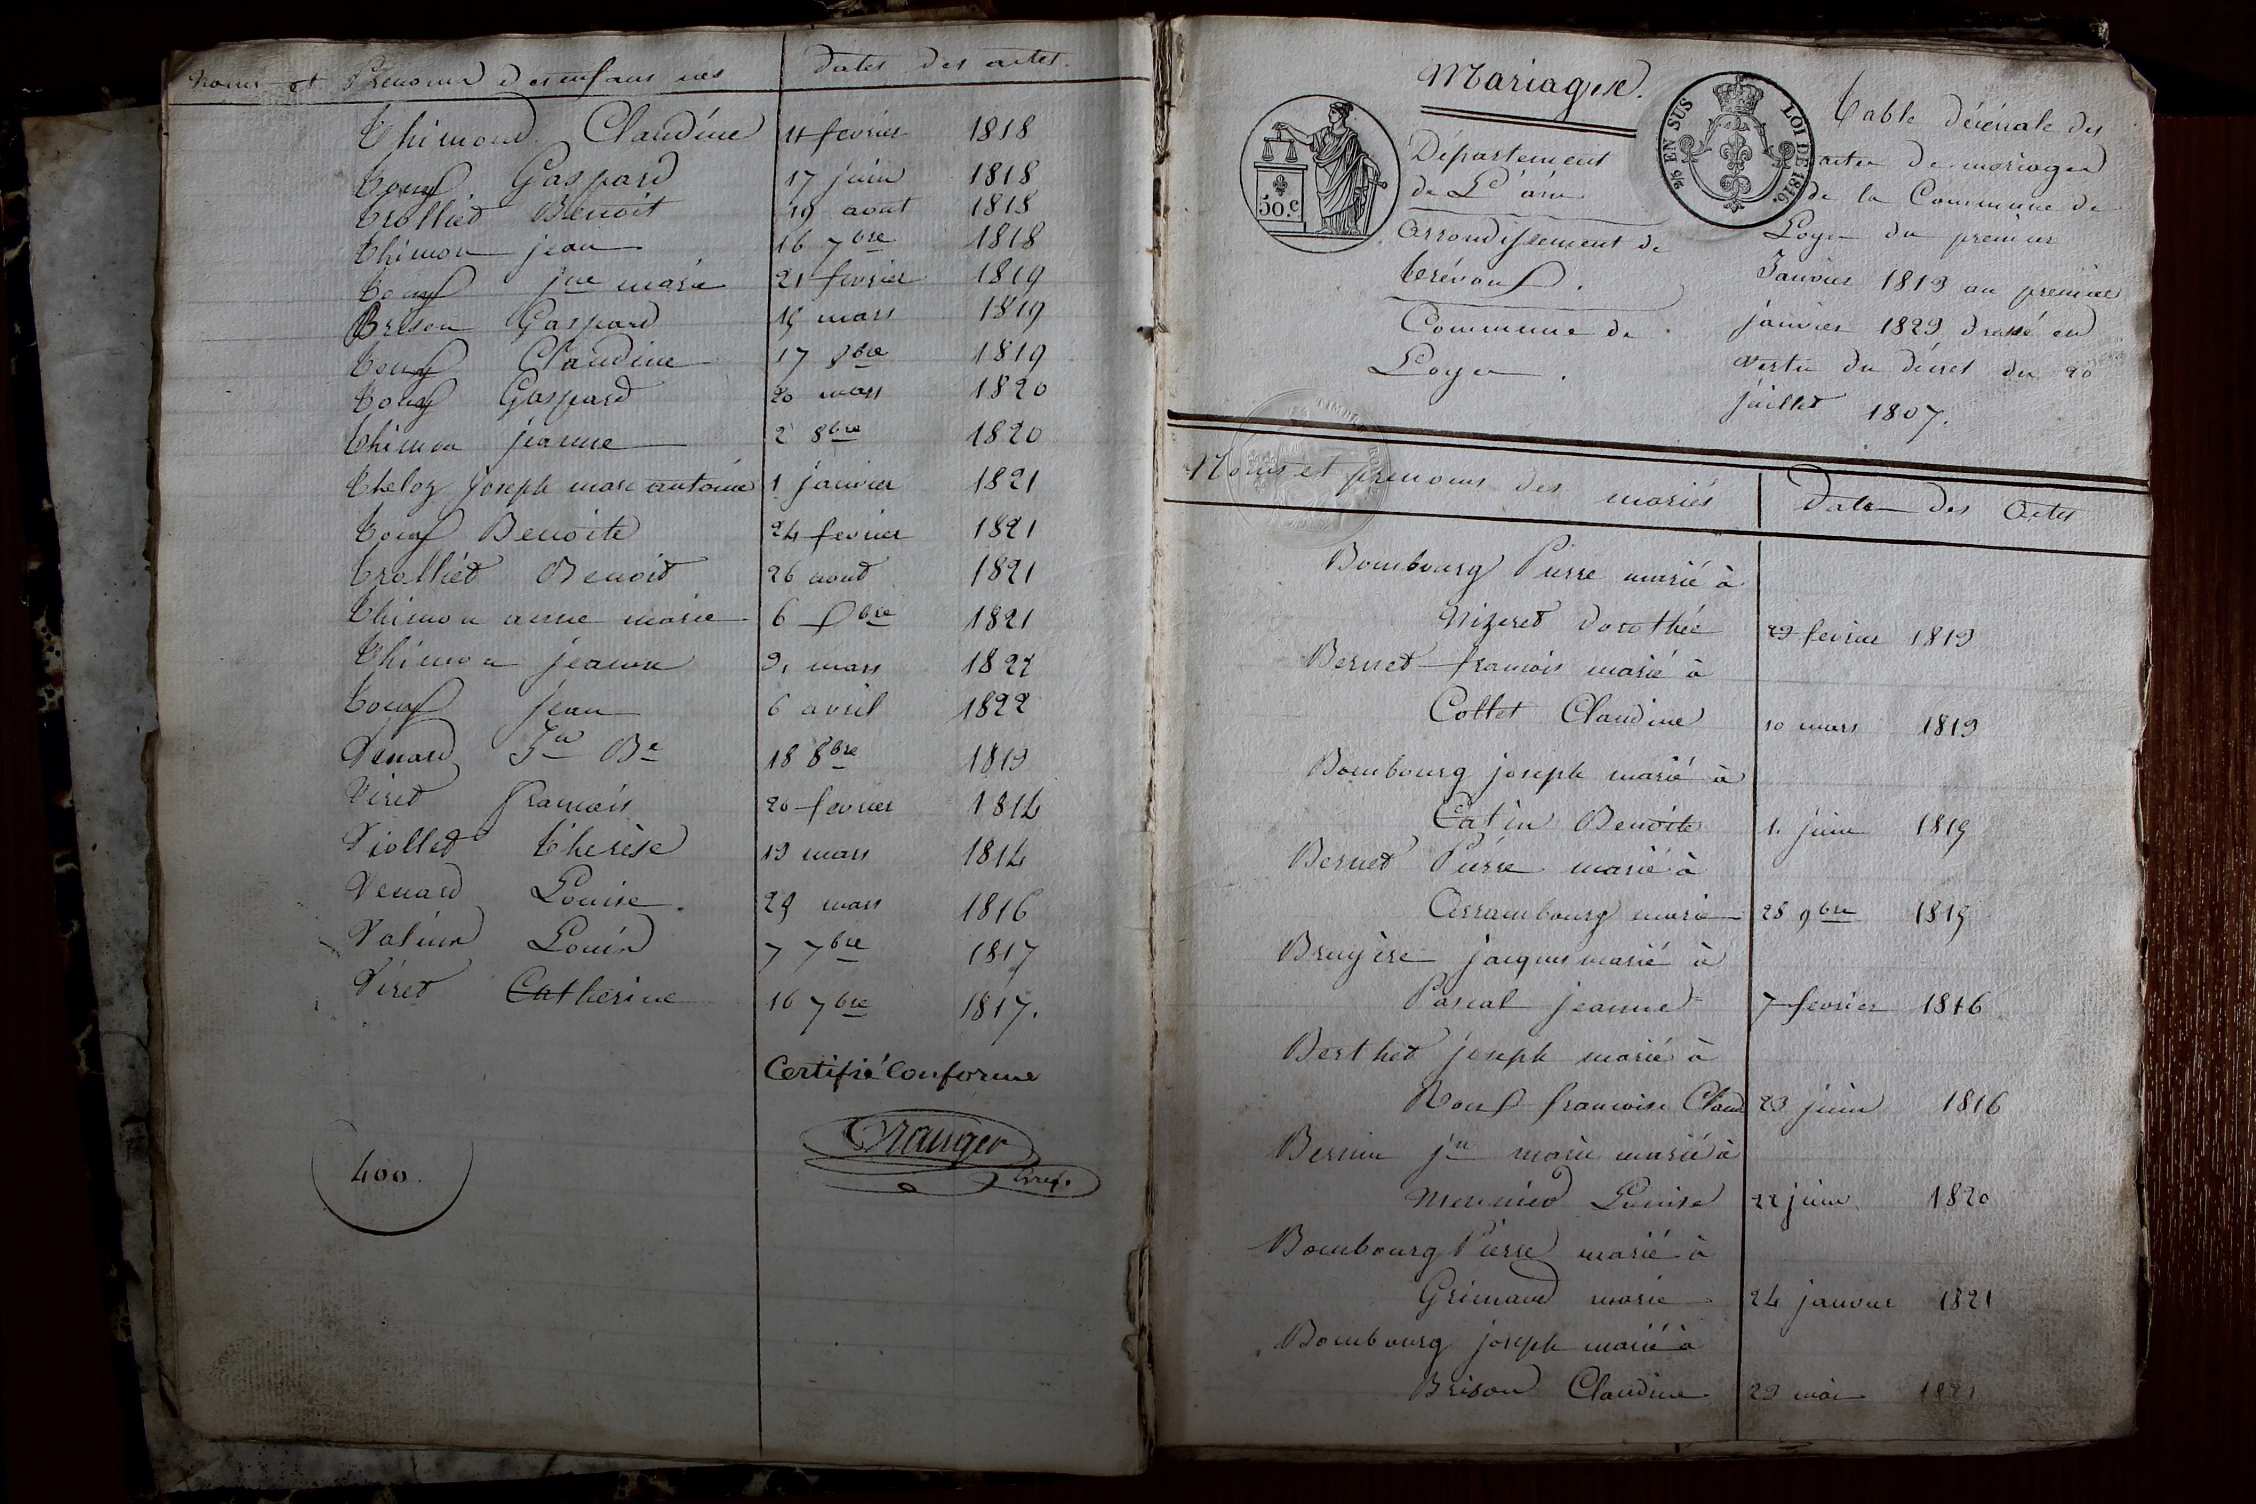 Noms et Prenoms des enfans nés
Dates des actes.
Thimond Claudine 11 fevrier 1818
Gaspard 17 juin 1818
Trolliet Benoit 19 aout 1818
Thimon jean 16 7bre 1818
jne marie 21 fevrier 1819
Brison Gaspard 15 mars 1819
Claudine 17 1819
Gaspard 20 mars 1820
Thimon jeanne 2 8bre 1820
joseph marc antoine 1 janvier 1821
Benoite 24 fevrier 1821
Trolliet Benoit 26 aout 1821
Thimon anne marie 6 1821
Thimon jeanne mars 1822
jean 6 avril 1822
Venard Jn Be 18 8bre 1813
Viret francois 20 fevrier 1814
Viollet Therèse 19 mars 1814
Venard Louise. 29 mars 1816
Louis 7 7bre 1817
Viret Catherine 16 7bre 1817.
Certifié Conforme
Granger
Greff.
400.
Mariages.
50.c
2/5 EN SUS
LOI DE 1816.
Département
de L'ain
Arrondissement de
Trévoux.
Commune de
Loyes.
Table décénale des
actes de mariages
de la Commune de
Loyes du premier
Janvier 1813 au premier
janvier 1823 dressé en
vertu du décret du 20
juillet 1807.
Noms et prenoms des mariés
Date des Actes
Bombourg Pierre marié à
Nizeret dorothée 23 fevrier 1813
Bernet francois marié à
Collet Claudine 10 mars 1813
Bombourg joseph marié à
Catin Benoite 1. juin 1815
Bernet Pierre marié à
Arrambourg marie 28 9bre 1815
Bruyère jacques marié à
Pascal jeanne 7 fevrier 1816
Berthet joseph marié à
Roux francoise Claud 23 juin 1816
Bernin jn marie marié à
Meunier Louise 22 juin 1820
Bombourg Pierre marié à
Grimaud marie 24 janvier 1821
Bombourg joseph marié à
Brison Claudine 29 mai 1821